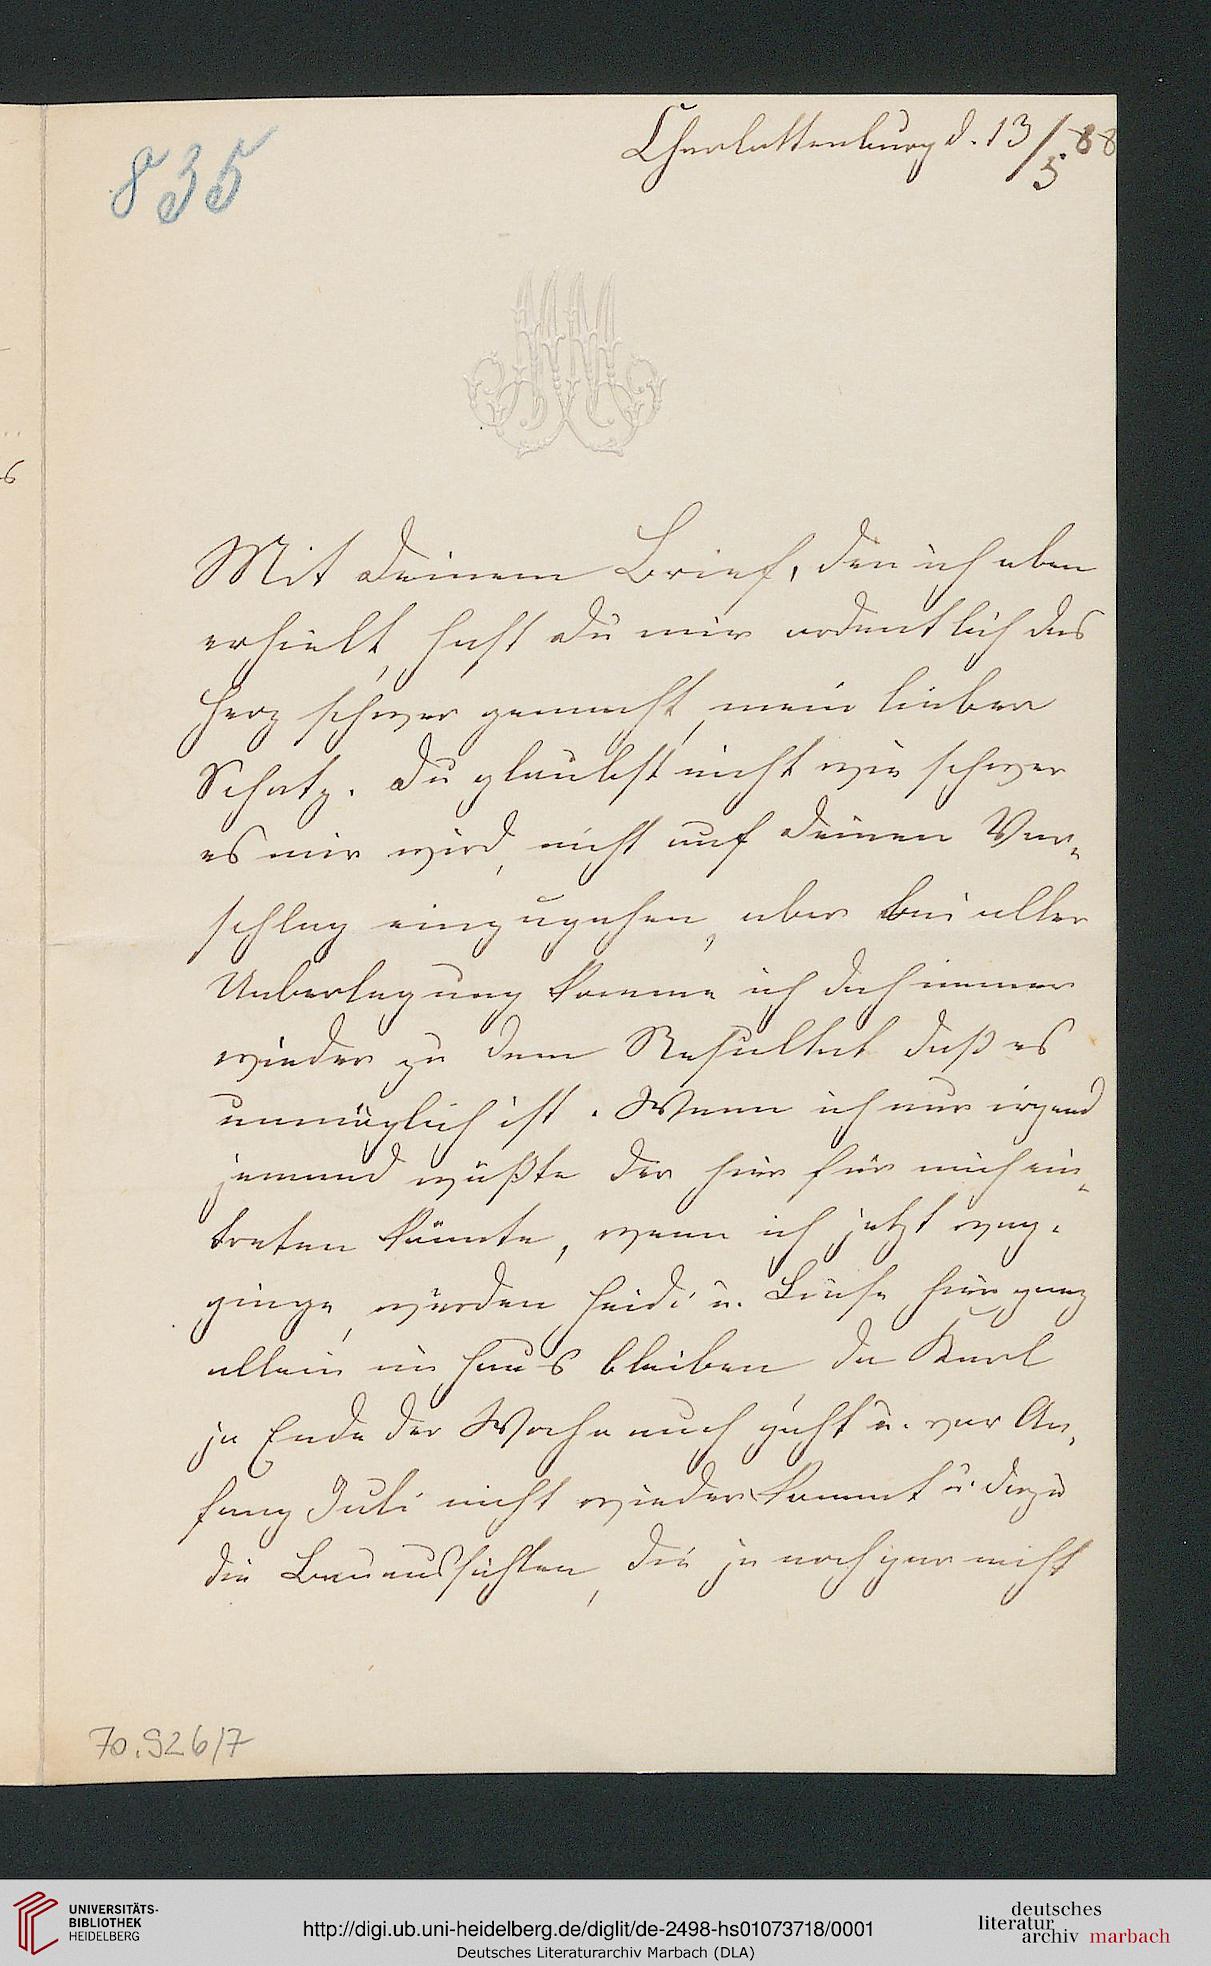 835
Charlottenburg d. 13/5 88
Mit Deinem Brief, den ich eben
erhielt, hast Du mir ordentlich das
Herz schwer gemacht, mein lieber
Schatz. Du glaubst nicht wie schwer
es mir wird, nicht auf Deinen Vor-
schlag einzugehen, aber bei aller
Ueberlegung komme ich doch immer
wieder zu dem Resultat daß es
unmöglich ist. Wenn ich nur irgend
jemand wüßte der hier für mich ein-
treten könnte, wenn ich jetzt weg-
ginge, würden Heidi u. Luise hier ganz
allein im Haus bleiben da Karl
ja Ende der Woche auch geht u. vor An-
fang Juli nicht wieder kommt u. dazu
die Bauaussichten, die ja noch gar nicht
70.926/7
UNIVERSITÄTS-
BIBLIOTHEK
HEIDELBERG
http://digi.ub.uni-heidelberg.de/diglit/de-2498-hs01073718/0001
Deutsches Literaturarchiv Marbach (DLA)
deutsches
literatur
archiv marbach